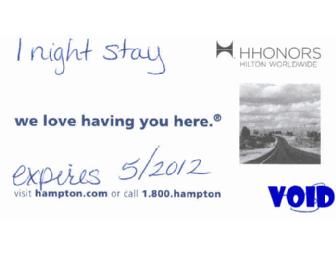 1 night stay
HHONORS
HILTON WORLDWIDE
we love having you here.®
expires 5/2012
visit hampton.com or call 1.800.hampton
VOID